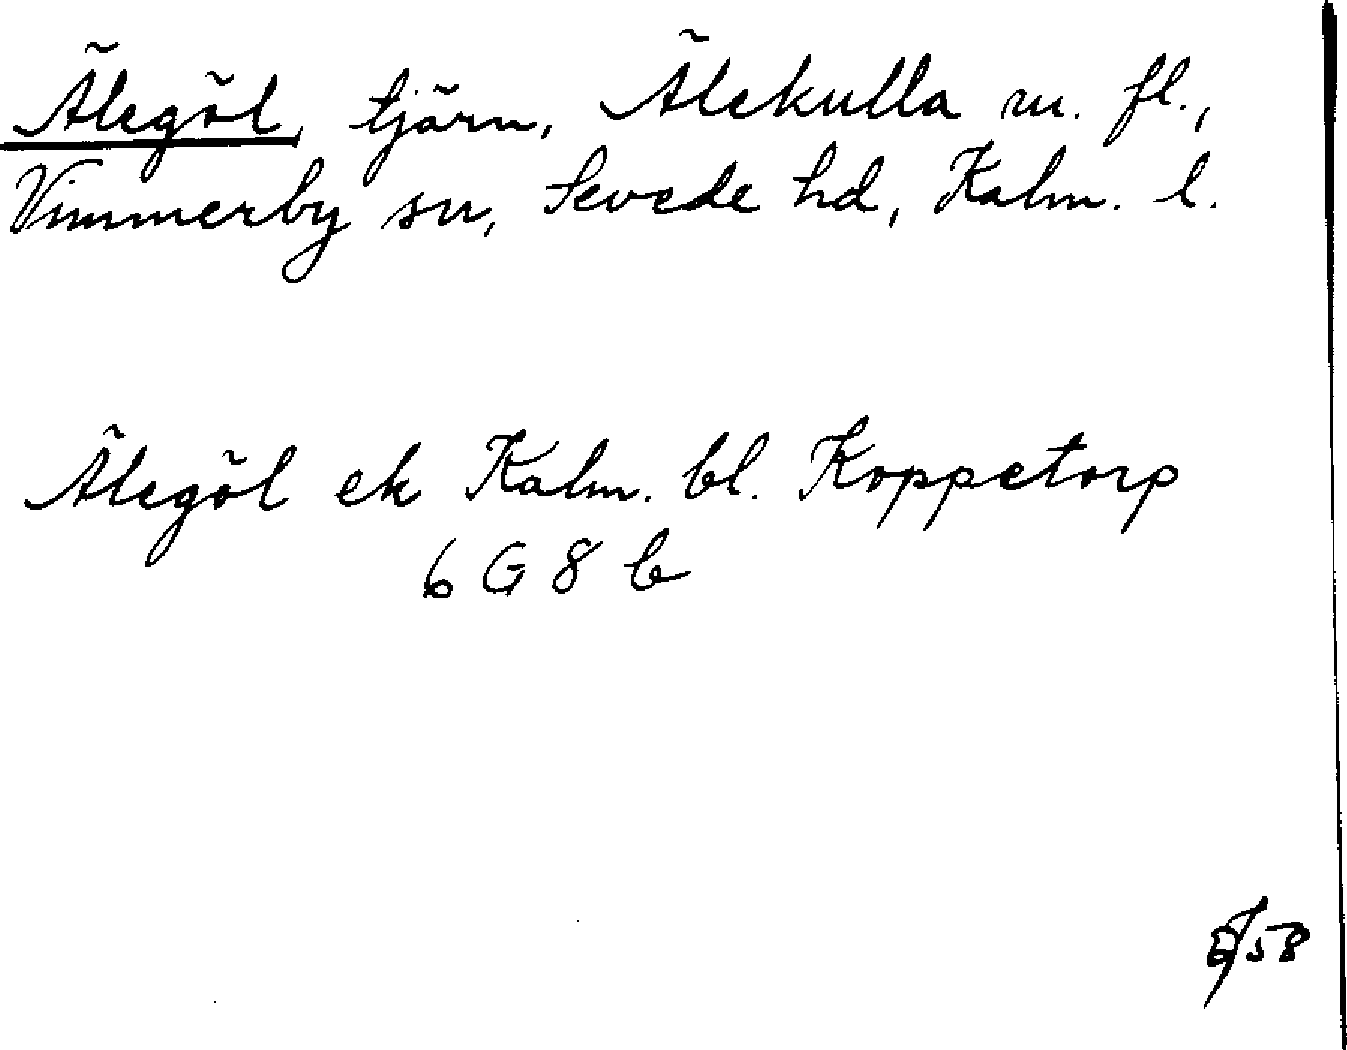 Älegöl, tjärn, Älekulla m. fl.,
Vimmerby sn, Sevede hd, Kalm. l.
Älegöl ek Kalm. bl. Koppetorp
6 G 8 b